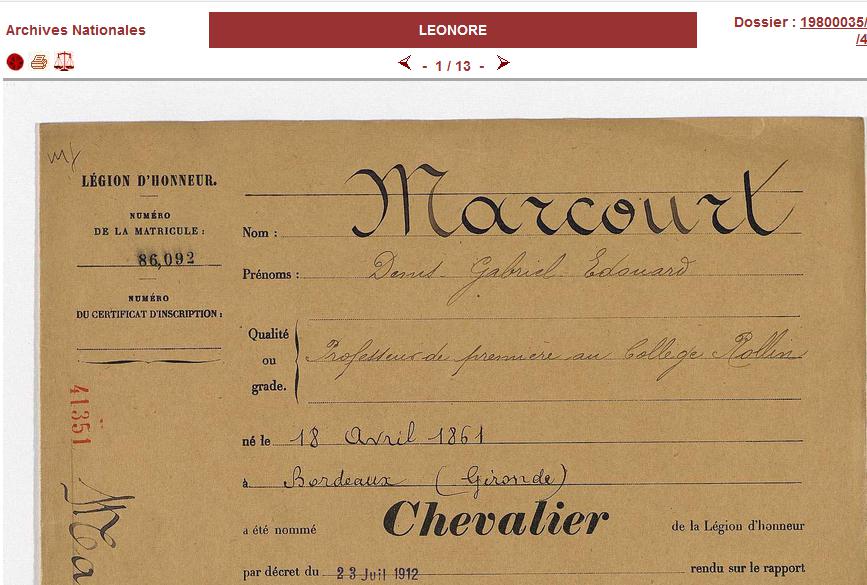 Archives Nationales
LEONORE
Dossier : 19800035/
/4
- 1 / 13 -
LÉGION D'HONNEUR.
NUMÉRO
DE LA MATRICULE :
86,092
NUMÉRO
DU CERTIFICAT D'INSCRIPTION :
41351
Nom : Marcourt
Prénoms : Denis Gabriel Edouard
Qualité
ou
grade.
Professeur de première au Collège Rollin
né le 18 Avril 1861
à Bordeaux (Gironde)
a été nommé Chevalier de la Légion d'honneur
par décret du 23 Juil 1912 rendu sur le rapport